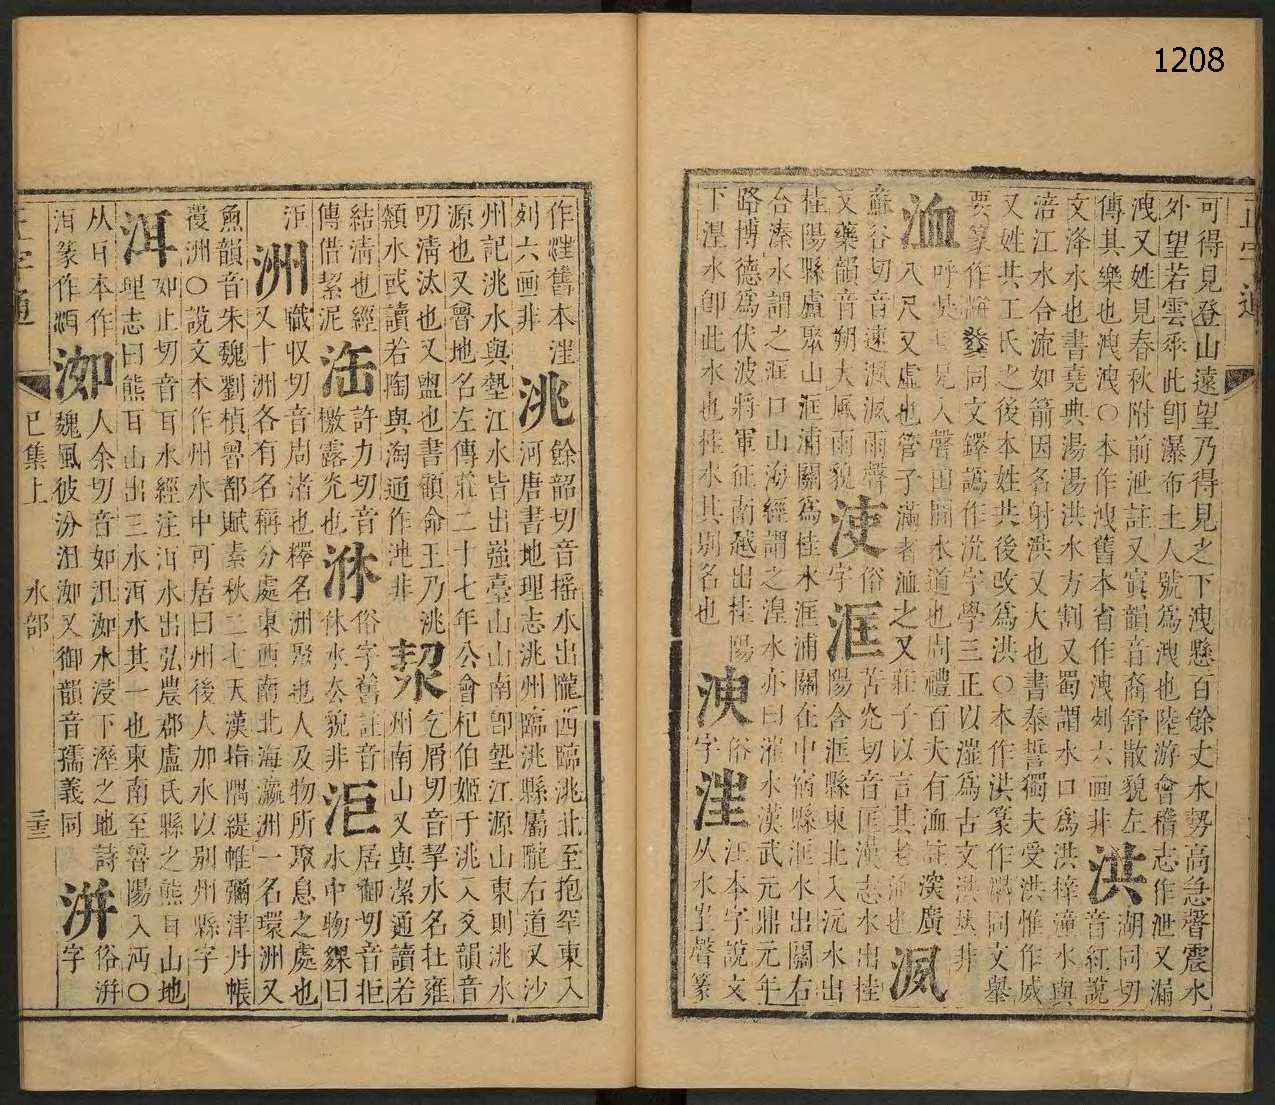 1208
正字通
可得見登山遠望乃得見之下洩懸百餘丈水勢高急聲震水
外望若雲㐸此卽瀑布土人號為洩也陸游會稽志作泄又漏
洩又姓見春秋附前泄註又寘韻音裔舒散貌左
傳其樂也洩洩〇本作洩舊本省作洩列六画非
洪
湖同切
音紅說
文洚水也書堯典湯湯洪水方割又蜀謂水口為洪樟潼水與
涪江水合流如箭因名射洪又大也書泰誓獨夫受洪惟作威
又姓共工氏之後本姓共後改為洪〇本作洪篆作同文舉
要篆作同文鐸譌作沇字學三正以湴為古文洪非
洫
呼入聲田間水道也周禮百夫有洫註深廣
八尺又虛也管子滿者洫之又莊子以言其老洫也
㴋
蘇谷切音速㴋㴋雨聲
又藥韻音朔大風雨貌
㳨
俗
字
洭
苦光切音匡漢志水出桂
陽含洭縣東北入沅水出
桂陽縣盧聚山洭浦關為桂水洭浦關在中宿縣洭水出關右
台溱水謂之洭口山海經謂之湟水亦曰灕水漢武元鼎元年
路博德為伏波將軍征南越出桂陽
下湟水卽此水也桂水其别名也
㳛
俗
字
㳹
汪本字說文
从水㞷聲篆
作㳹舊本湟
列六画非
洮
餘韶切音搖水出隴西臨洮北至抱罕東入
河唐書地理志洮州臨洮縣屬隴右道又沙
州記洮水與墊江水皆出強臺山山南卽墊江源山東則洮水
源也又會地名左傳莊二十七年公會杞伯姬于洮入爻韻音
叨淸汰也又盥也書顧命王乃洮
纇水或讀若陶與淘通作洮非
㓗
乞屑切音挈水名在雍
州南山又與潔通讀若
結淸也經
傳借絜泥
㳑
許力切音
檄露光也
㳜
俗字舊註音
休水去貌非
洰
居御切音拒
水中物稞曰
洰
洲
職収切音周渚也釋名洲聚也人及物所聚息之處也
又十洲各有名稱分處東西南北海瀛洲一名環洲又
魚韻音朱魏劉楨魯都賦素秋二七天漢指隅緹帷彌津丹帳
覆洲〇說文本作州水中可居曰州後人加水以别州縣字
洱
如止切音耳水經注洱水出弘農郡盧氏縣之熊耳山地
理志曰熊耳山出三水洱水其一也東南至魯陽入沔〇
从耳本作
洱篆作
洳
人余切音如沮洳水浸下溼之地詩
魏風彼汾沮洳又御韻音孺義同
洴
俗洴
字
正字通
巳集上
水部
三十三